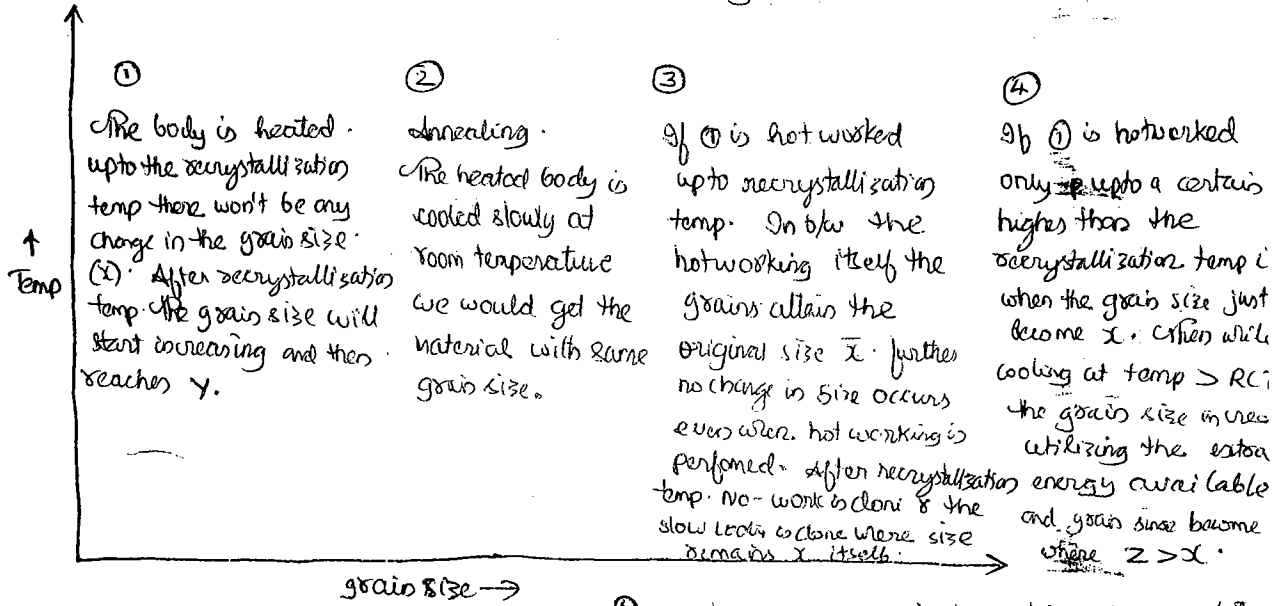 ①
The body is heated.
upto the recrystallization
temp there won't be any
change in the grain size.
(x). After recrystallization
temp. the grain size will
start increasing and then
reaches y.
②
Annealing.
The heated body is
cooled slowly at
room temperature
we would get the
material with same
grain size.
③
If ① is hot worked
upto recrystallization
temp. In b/w the
hotworking itself the
grains attain the
original size x. further
no change in size occurs
even when hot working is
perfomed. After recrystallization
temp. no-work is done & the
slow is done where size
remains x itself.
④
If ① is hotworked
only upto a certain
higher than the
recrystallization temp i
when the grain size just
become x. then
cooling at temp > RC
the grain size increa
utilizing the extra
energy available
and grain become
where z > x.
↑
Temp
grain size →